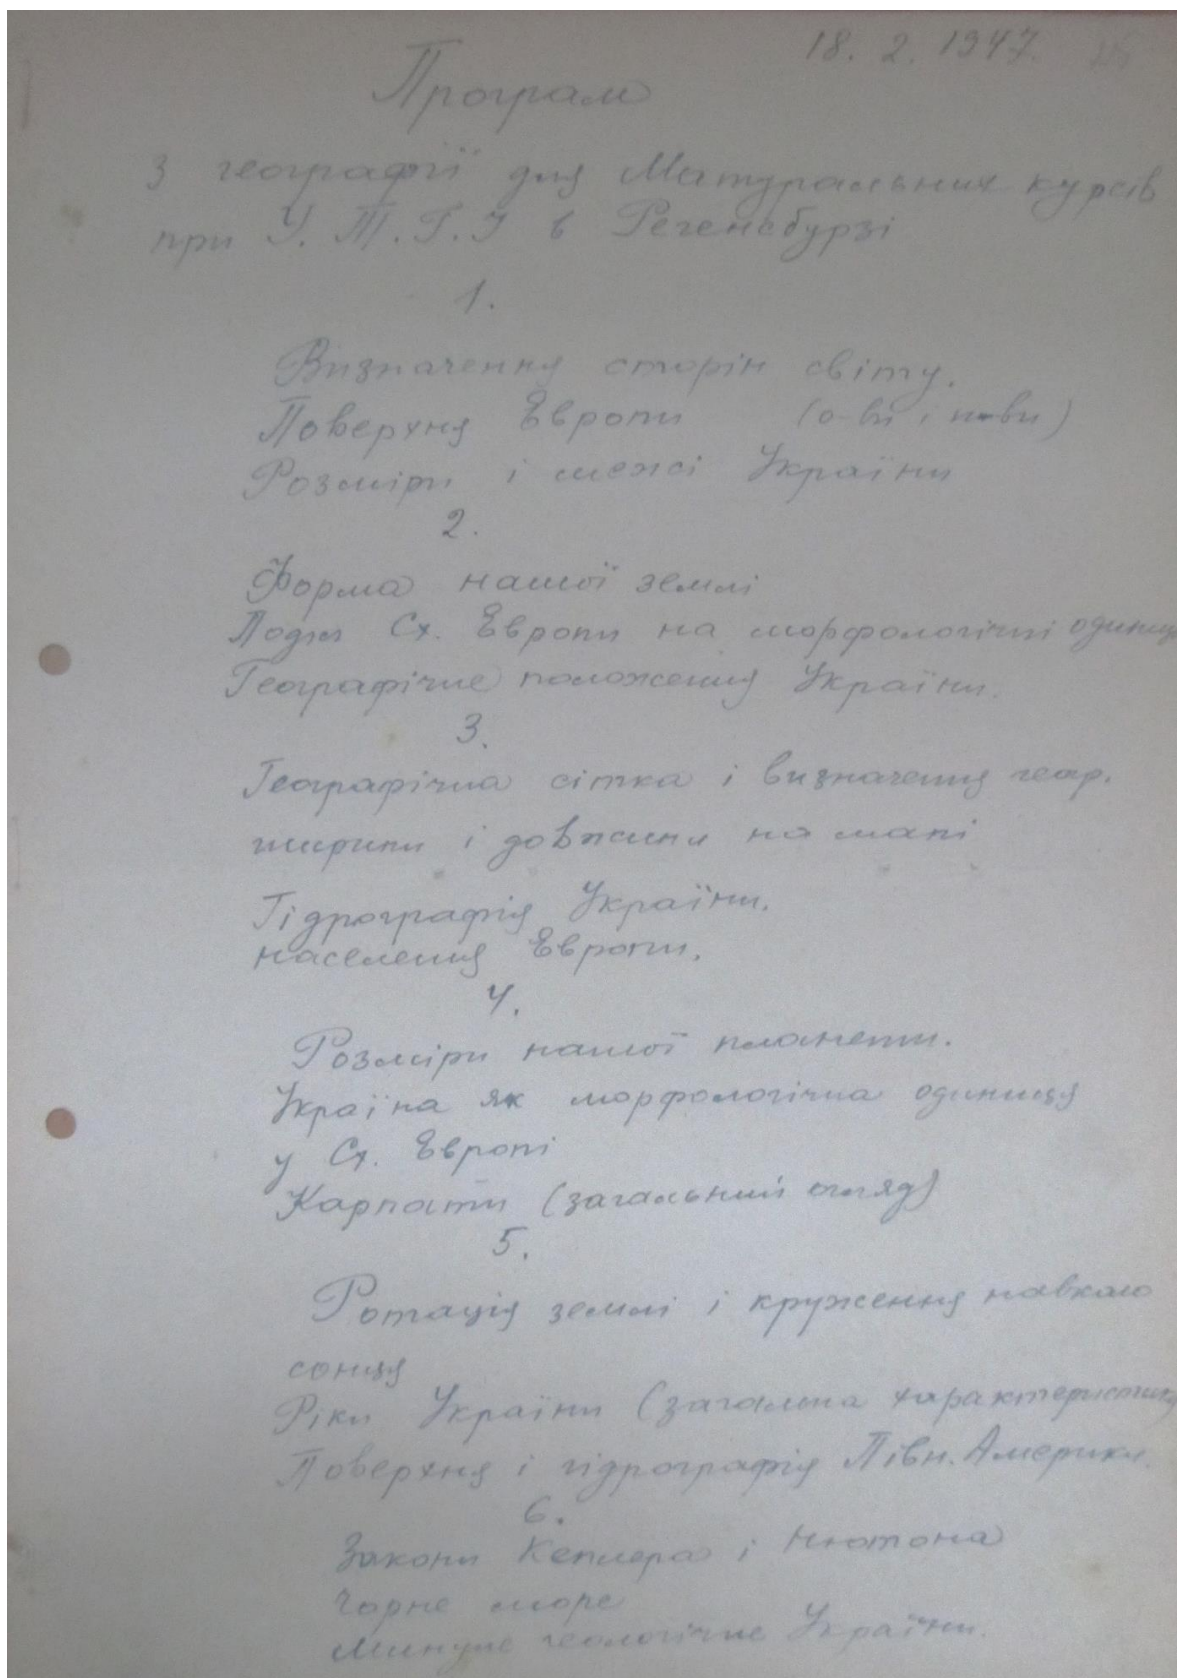 18. 2. 1947.
Програм
З географії для Матуральних курсів
при У. Т. Г. І в Регенсбурзі
1.
Визначення сторін світу.
Поверхня Европи (о-ви і п-ви)
Розміри і межі України
2.
Форма нашої землі
Поділ Сх. Европи на морфологічні одиниці
Географічне положення України.
3.
Географічна сітка і визначення геогр.
ширини і довжини на мапі
Гідрографія України.
населення Европи.
4.
Розміри нашої планети.
Україна як морфологічна одиниця
у Сх. Европі
Карпати (загальний огляд)
5.
Ротація землі і круження навколо
сонця
Ріки України (загальна характеристика
Поверхня і гідрографія Півн. Америки.
6.
Закони Кеплера і Нютона
Чорне море
Минуле геологічне України.